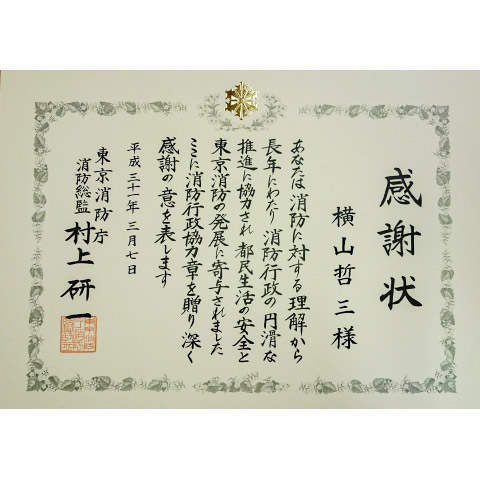 感謝状
横山哲三様
あなたは消防に対する理解から
長年にわたり消防行政の円滑な
推進に協力され都民生活の安全と
東京消防の発展に寄与されました
ここに消防行政協力章を贈り深く
感謝の意を表します
平成三十一年三月七日
東京消防庁
消防総監 村上研一